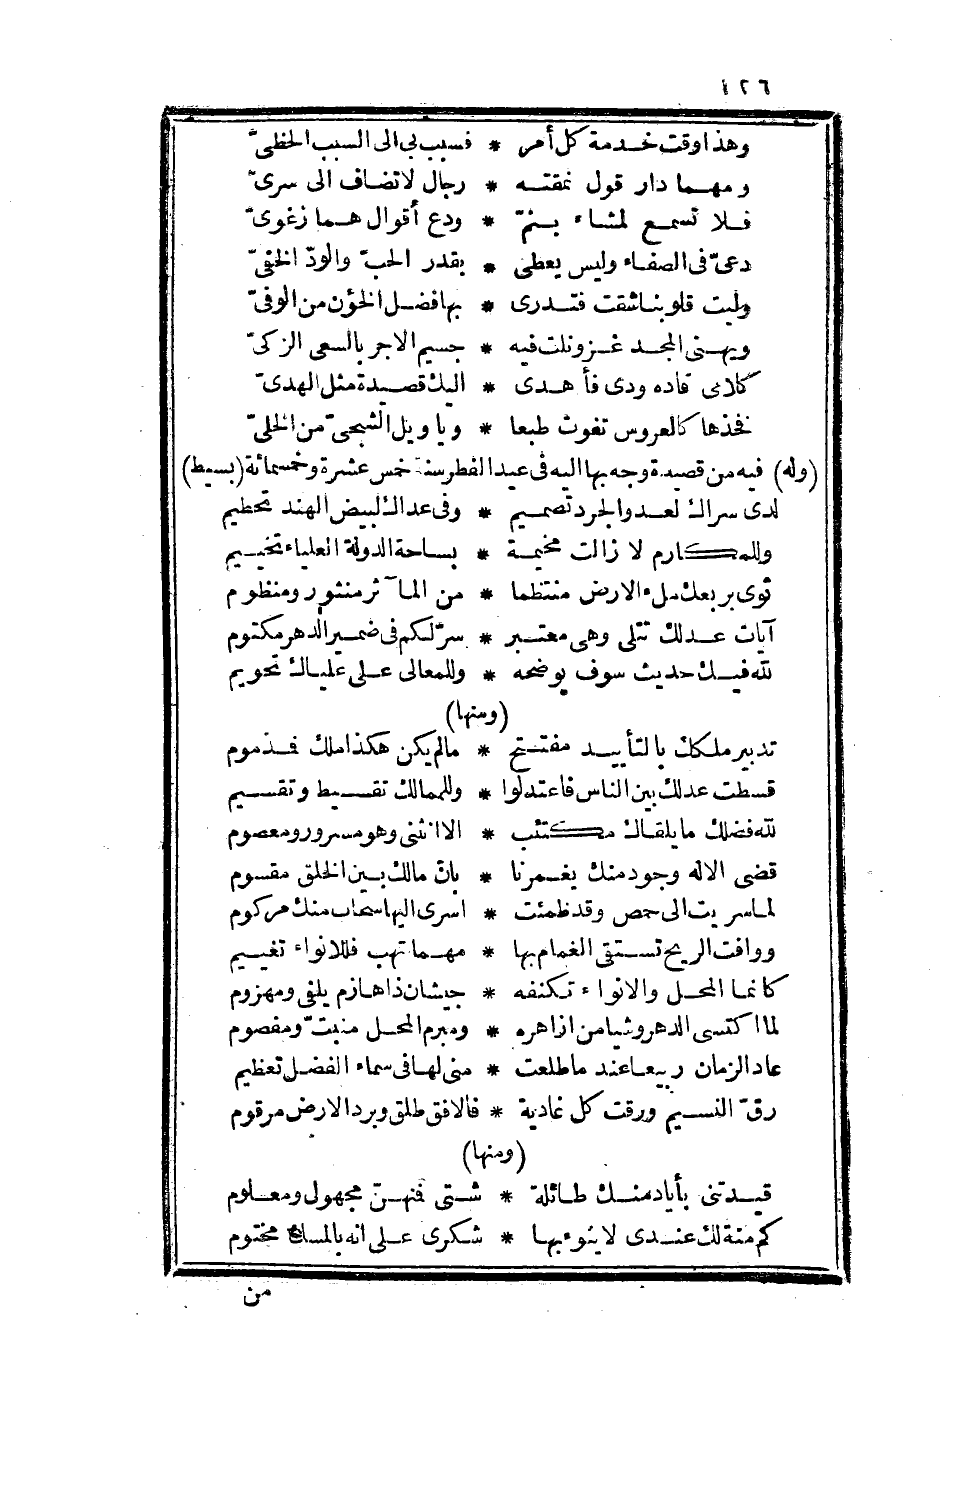 ١٢٦
وهذا وقت خدمة كل أمر * فسبب لي الى السبب الحظىّ
ومهما دار قول نمقته * رجال لا تضاف الى سرىّ
فلا تسمع لمشاء بنمّ * ودع أقوال هماز غوىّ
دعىّ فى الصفاء وليس يعطى * بقدر الحبّ والودّ الخفىّ
وليت قلوبنا شقت فتدرى * بها فضل الخؤن من الوفىّ
ويهنى المجد غزو نلت فيه * جسيم الاجر بالسعى الزكىّ
كلامى قاده ودى فأهدى * اليك قصيدة مثل الهدىّ
فخذها كالعروس تفوت طبعا * ويا ويل الشجىّ من الخلىّ
(وله) فيه من قصيدة وجه بها اليه فى عيد الفطر سنة خمس عشرة وخمسمائة (بسيط)
لدى سراك لعدو الجرد تصميم * وفى عداك لبيض الهند تحطيم
وللمكارم لا زالت مخيمة * بساحة الدولة العلياء تخييم
ثوى بربعك ملء الارض منتظما * من المآثر منثور ومنظوم
آيات عدلك تتلى وهى معتبر * سرّ لكم فى ضمير الدهر مكتوم
لله فيك حديث سوف يوضحه * وللمعالى على علياك تحويم
(ومنها)
تدبير ملكك بالتأييد مفتتح * مالم يكن هكذا ملك فمذموم
قسطت عدلك بين الناس فاعتدلوا * وللممالك تقسيط وتقسيم
لله فضلك ما يلقاك مكتئب * الا انثنى وهو مسرور ومعصوم
قضى الاله وجود منك يغمرنا * بان مالك بين الخلق مقسوم
لما سريت الى حمص وقد ظمئت * اسرى اليها سحاب منك مركوم
ووافت الريح تستقى الغمام بها * مهما تهب فللانواء تغييم
كانما المحل والانواء تكنفه * جيشان ذا هازم يلفى ومهزوم
لما اكتسى الدهر وشيا من ازاهره * ومبرم المحل منبتّ ومفصوم
عاد الزمان ربيعا عند ما طلعت * منى لها فى سماء الفضل تعظيم
رقّ النسيم ورقت كل غادية * فالافق طلق وبرد الارض مرقوم
(ومنها)
قيدتنى بأياد منك طائلة * شتى فمنهنّ مجهول ومعلوم
كم منة لك عندى لا ينوء بها * شكرى على انه بالمسك مختوم
من